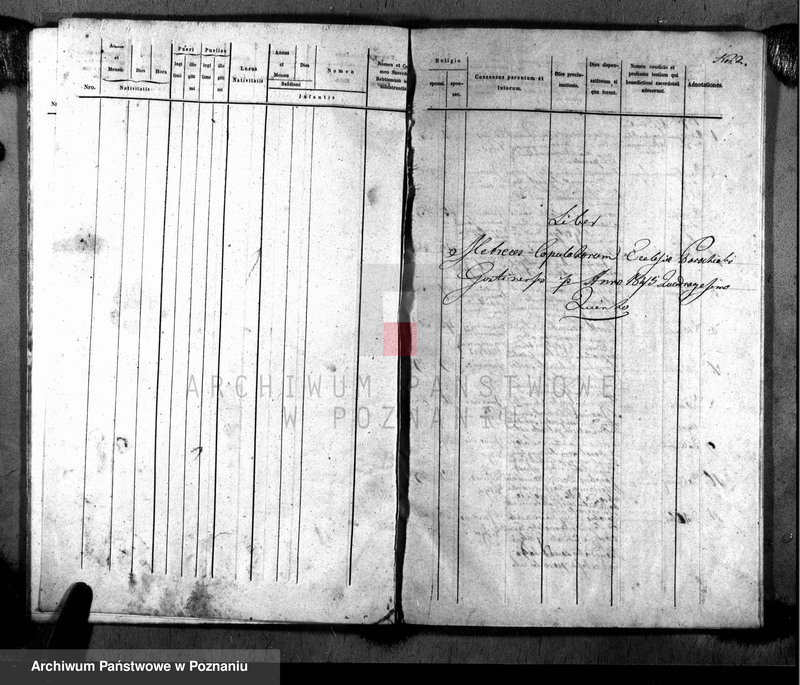 Nro.
Annus et Mensis
Dies
Hora
Nativitatis
Pueri
legi timi
ille giti mi
Puellae
legi timi
ille giti mi
Locus Nativitatis
Annus et Mensis
Dies
Baptismi
Nomen
Infantis
Religio
sponsi.
spon- sae.
Consensus parentum et tutorum.
Dies procla- mationis.
Dies dispen- sationum si quae forent.
Nomen conditio et professio testium qui benedictioni sacerdotali adfuerunt.
Adnotationes.
Liber
Metrices Copulatorum Eccelsia Parochialis
p Anno 1845 Quadragesimo
Quinto
ARCHIWUM PAŃSTWOWE
W POZNANIU
Archiwum Państwowe w Poznaniu